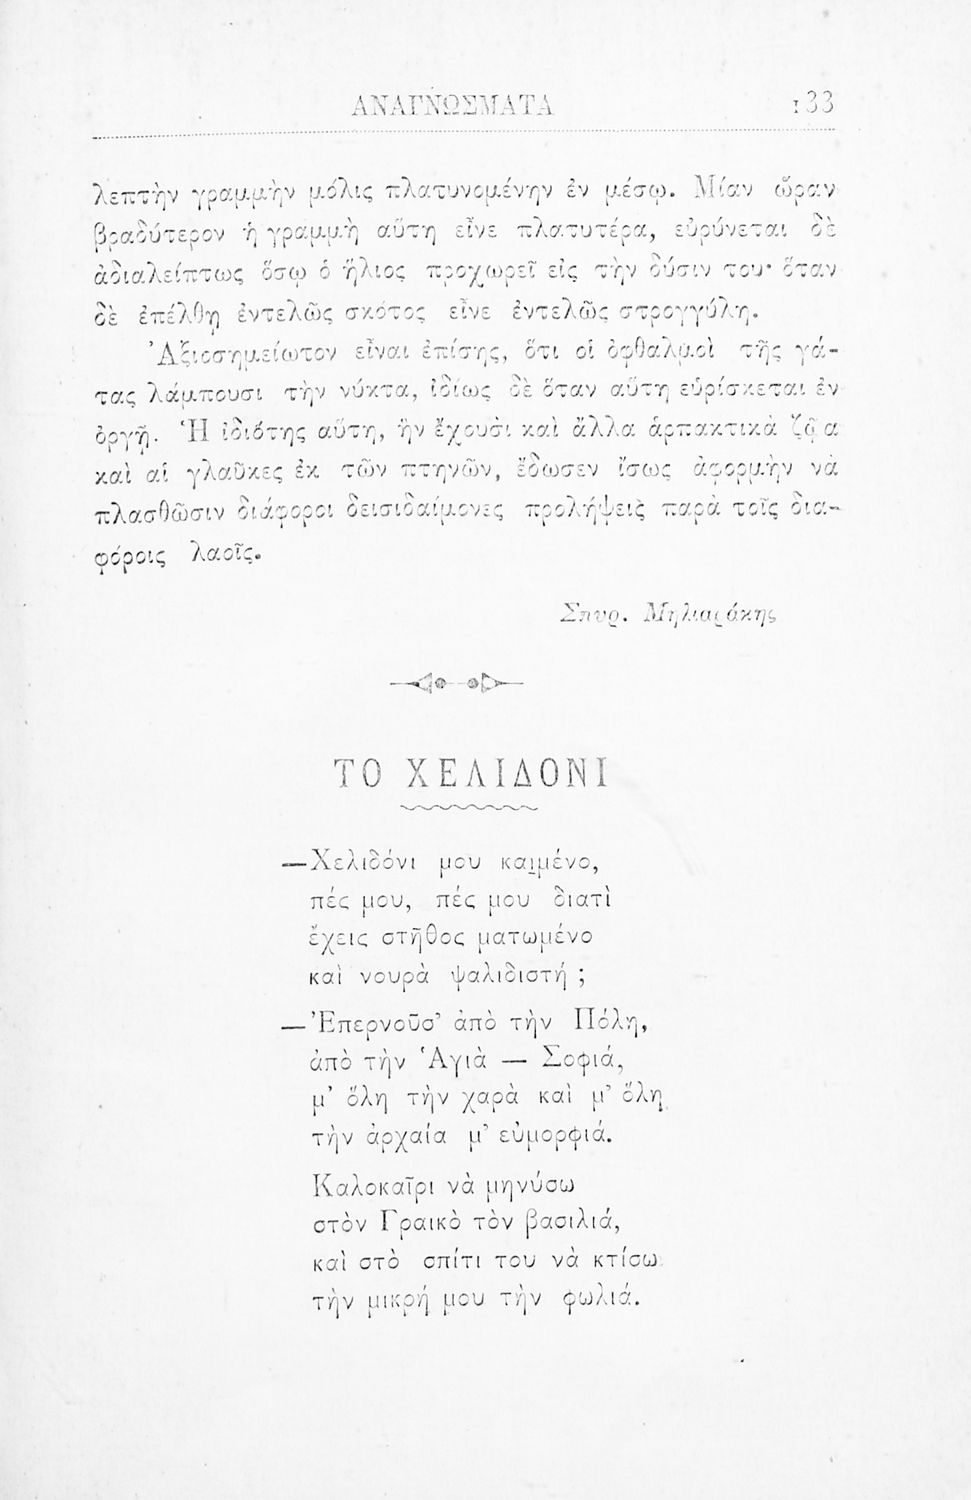 ΑΝΑΓΝΩΣΜΑΤΑ 133
λεπτὴν γραμμὴν μόλις πλατυνομένην ἐν μέσῳ. Μίαν ὥραν
βραδύτερον ἡ γραμμὴ αὕτη εἶνε πλατυτέρα, εὐρύνεται δὲ
ἀδιαλείπτως ὅσῳ ὁ ἥλιος προχωρεῖ εἰς τὴν δύσιν του· ὅταν
δὲ ἐπέλθῃ ἐντελῶς σκότος εἶνε ἐντελῶς στρογγύλη.
Ἀξιοσημείωτον εἶναι ἐπίσης, ὅτι οἱ ὀφθαλμοὶ τῆς γά-
τας λάμπουσι τὴν νύκτα, ἰδίως δὲ ὅταν αὕτη εὑρίσκεται ἐν
ὀργῇ. Ἡ ἰδιότης αὕτη, ἣν ἔχουσι καὶ ἄλλα ἁρπακτικὰ ζῷα
καὶ αἱ γλαῦκες ἐκ τῶν πτηνῶν, ἔδωσεν ἴσως ἀφορμὴν νὰ
πλασθῶσιν διάφοροι δεισιδαίμονες προλήψεις παρὰ τοῖς δια-
φόροις λαοῖς.
Σπυρ. Μηλιαράκης
ΤΟ ΧΕΛΙΔΟΝΙ
—Χελιδόνι μου καϊμένο,
πές μου, πές μου διατὶ
ἔχεις στῆθος ματωμένο
καὶ νουρὰ ψαλιδιστή ;
—Ἐπερνοῦσ’ ἀπὸ τὴν Πόλη,
ἀπὸ τὴν Ἁγιὰ — Σοφιά,
μ’ ὅλη τὴν χαρὰ καὶ μ’ ὅλη
τὴν ἀρχαία μ’ εὐμορφιά.
Καλοκαῖρι νὰ μηνύσω
στὸν Γραικὸ τὸν βασιλιά,
καὶ στὸ σπίτι του νὰ κτίσω
τὴν μικρή μου τὴν φωλιά.